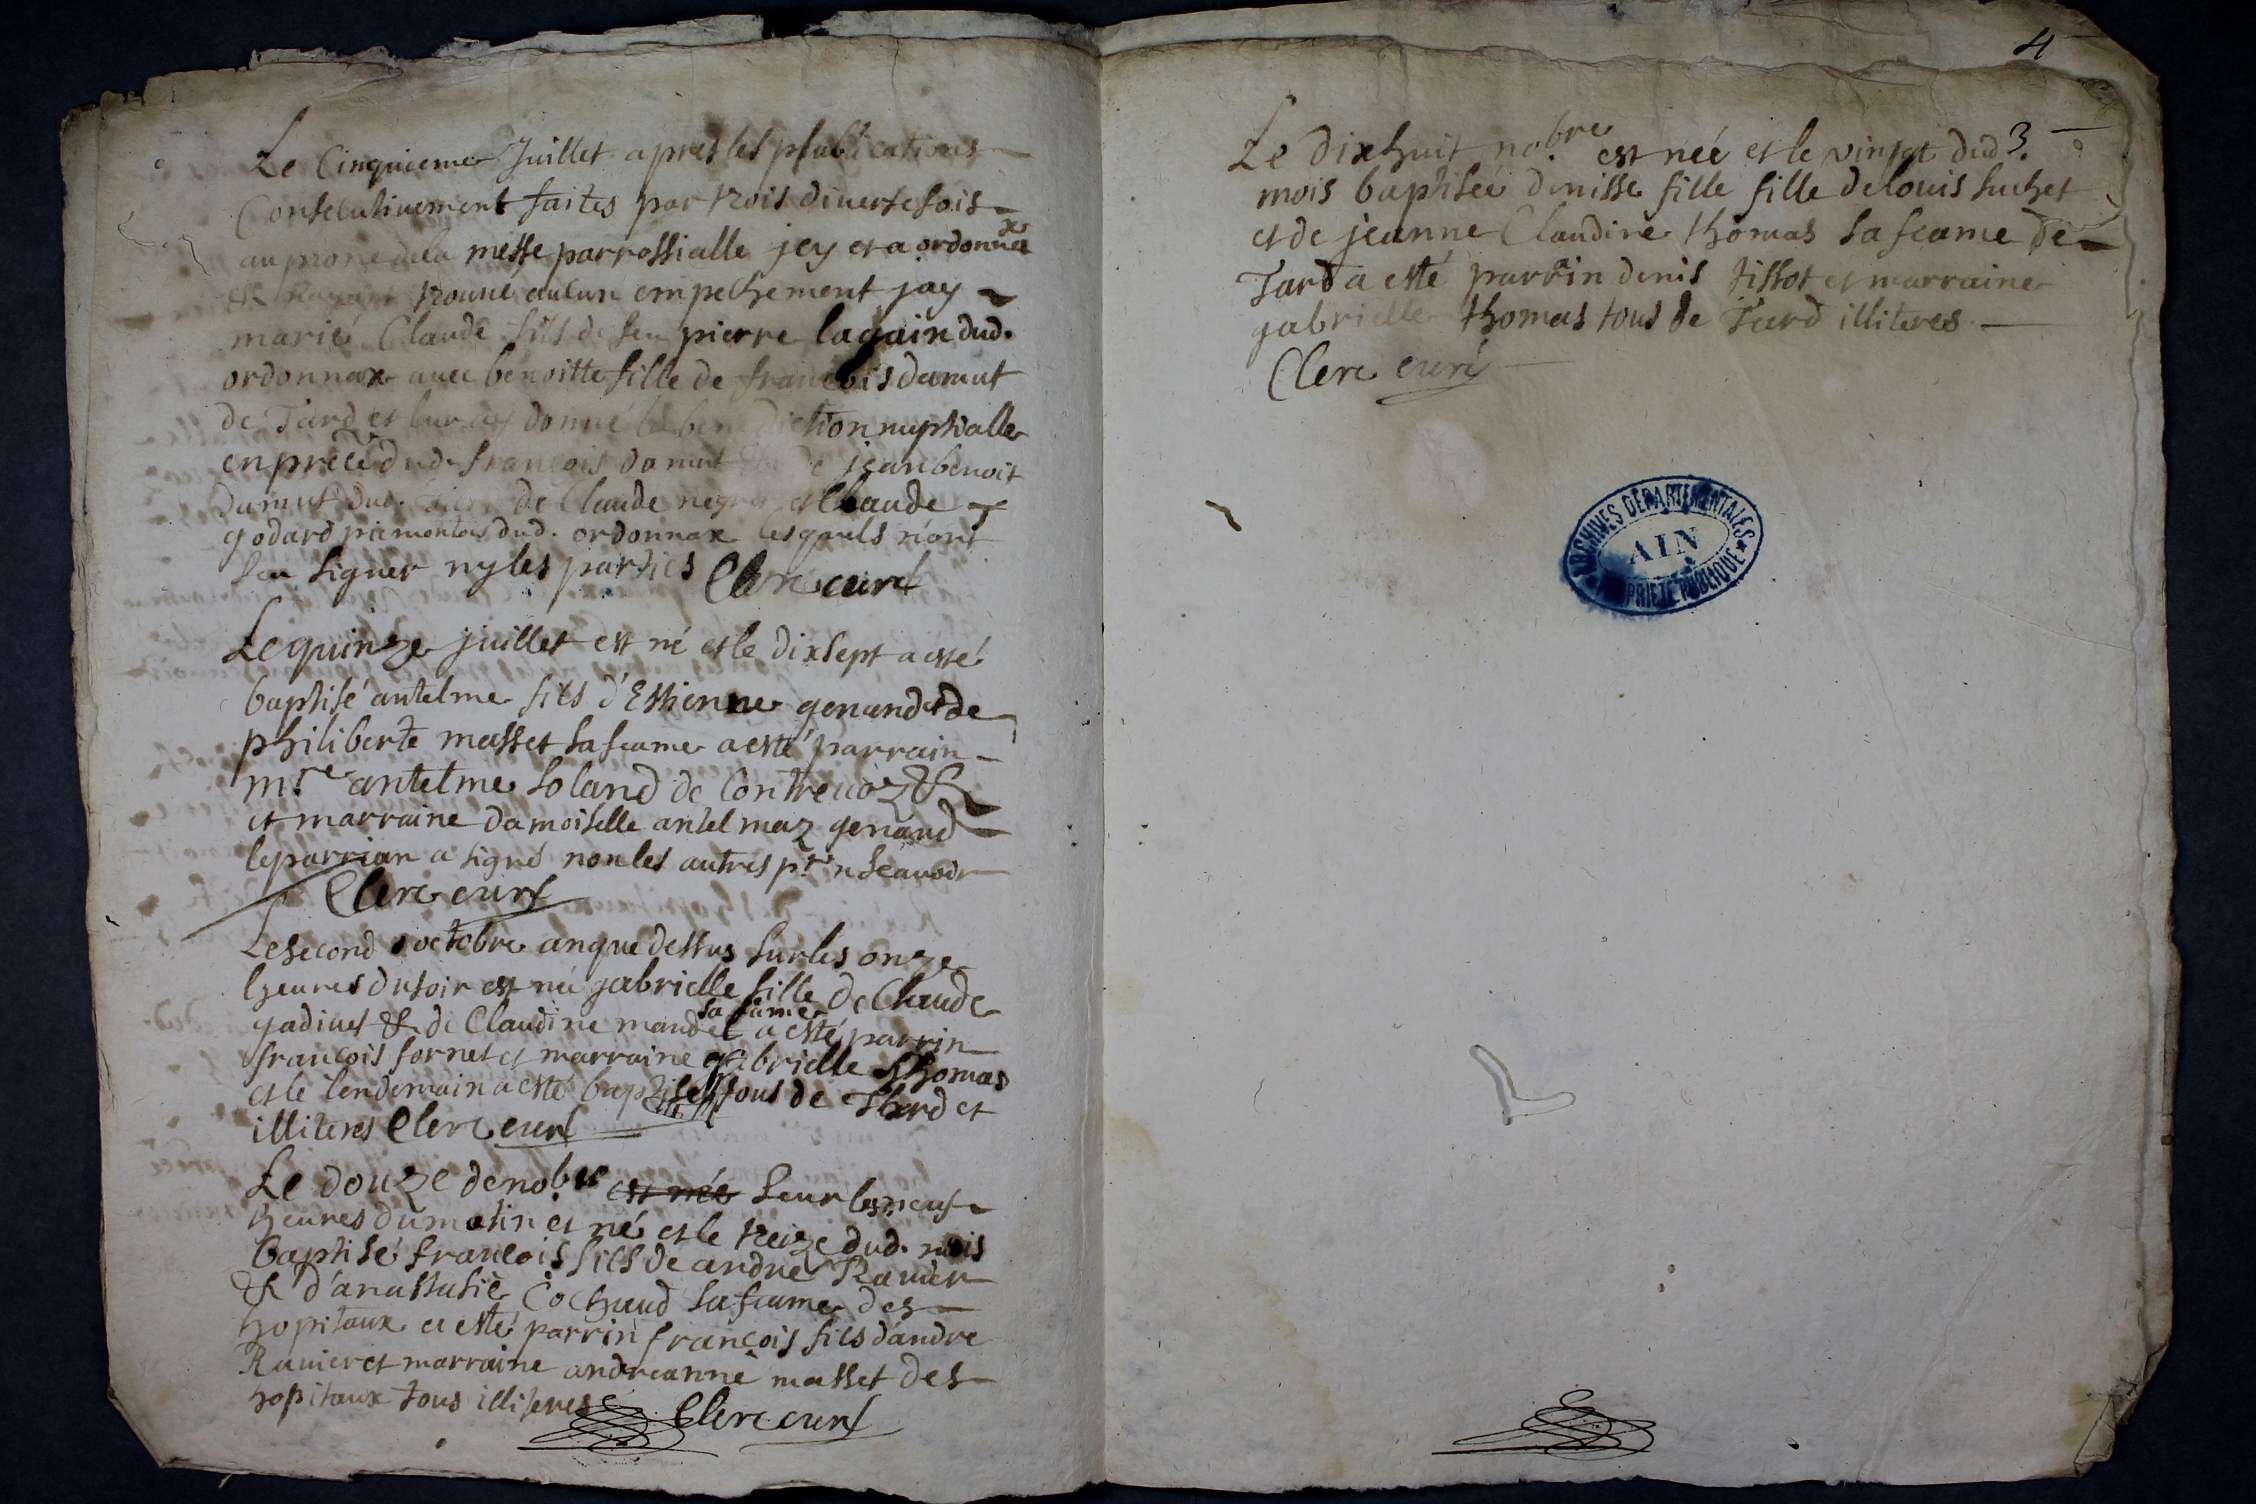 Le Cinquieme Juillet apres les publications
Consecutivement faites par trois diverse fois
au prone dela messe parrossialle jcy et a ordonnax
& trouvé aucun empechement jay
marié Claude fils de feu pierre lagain dud.
ordonnax avec benoitte fille de francois damut
de Tard et leur ay donné la benediction nuptialle
en prece dud. francois damut de jean benoit
damut dud. de Claude et Claude
godard piemontois dud. ordonnax lesquels n'ont
sceu signer ny les parties Clerc curé
Le quinze juillet est né et le dixsept a esté
baptisé antelme fils d'Estienne genand et de
philiberte masset sa feame a esté parrain
m.re antelme soland de Contrevoz &
et marraine damoiselle antelmaz genand
le parrian a signé non les autres p.r n scavoir
Clerc curé
Le second octobre an que dessus sur les onze
heures du soir est née gabrielle fille de Claude
gadivet & de Claudine mandet sa fame a esté parrin
francois fornet et marraine gabrielle Thomas
et le lendemain a esté baptisé tous de Thard et
illiteres Clerc curé
Le douze de no.bre est née seur les neuf
heures du matin et né et le treize dud. mois
baptisé francois fils de andre Ravier
& d'anastasie Cochaud sa feame des
hopitaux a esté parrin francois fils d'andre
Ravier et marraine andreanne masset des
hopitaux tous illiteres Clerc curé
4
Le dixhuit no.bre est née et le vingt dud.
mois baptisée denisse fille fille de louis suchet
et de jeanne Claudine thomas sa feame de
Tard a esté parrin denis tissot et marraine
gabrielle thomas tous de Tard illiteres
Clerc curé
ARCHIVES DÉPARTEMENTALES
AIN
PROPRIÉTÉ PUBLIQUE